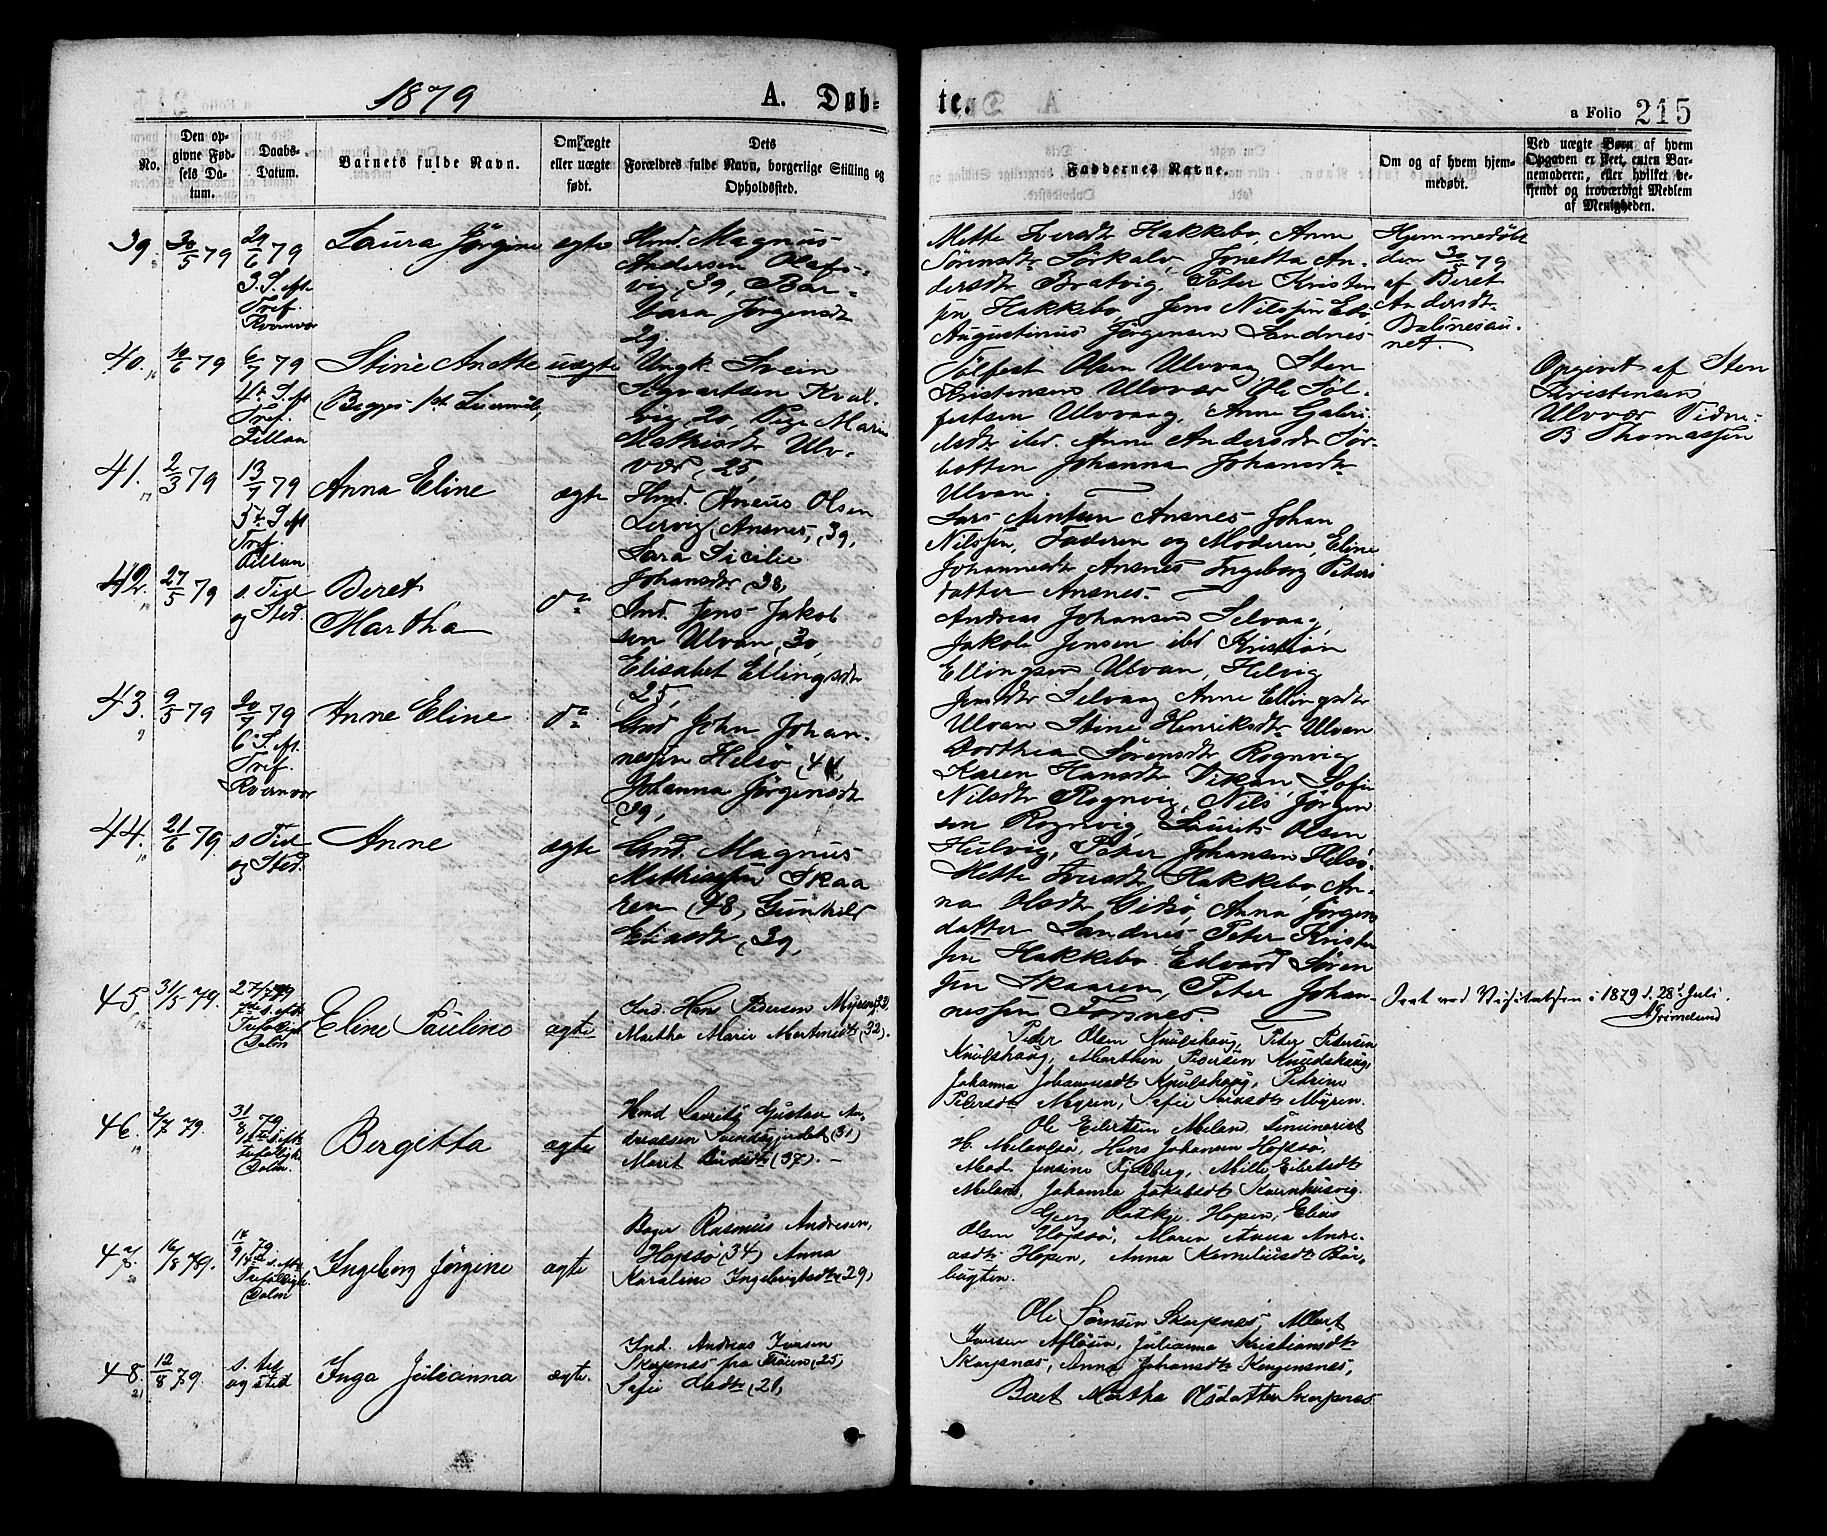 1879
A. Døb-
te.
a Folio 215
No.
Den op-
givne Fød-
sels Da-
tum.
Daabs-
Datum.
Barnets fulde Navn.
Om ægte
eller uægte
født.
Dets
Forældres fulde Navn, borgerlige Stilling og
Opholdssted.
Faddernes Navne.
Om og af hvem hjem-
medøbt.
Ved uægte Børn af hvem
Opgaven er skeet, enten Bar-
nemoderen, eller hvilket be-
kjendt og troværdigt Medlem
af Menigheden.
39. 30/5 79
29/6 79
3. S. eft.
Tref.
Kvenvær
Laura Jørgine
ægte
Hmd. Magnus
Andersen Olafs-
vig, 39, Bar-
bara Jørgensdt
29.
Mette Iversdt Hakkebo, Anne
Sørensdt Sørkalv, Jonetta An-
dersdt Bratvig, Peter Kristen
sen Hakkebo, Jens Nilssen Eds
Augustinus Jørgensen Sandnes
Hjemmedøbt
den 30/5 79
af Beret
Andersdt
Balsnesau-
net.
40. 10/6 79
6/7 79
4de S. eft
Tref.
Fillan
Stine Anette
(Begges 1st Leiermål,
uægte
Ungk. Svein
Sigvartsen Kval-
vig 20, Pige Marie
Mathisdt Ulv-
vær, 25,
Tølfest Olsen Ulvvag Sten
Kristensen Ulvvær Ole Tøl-
festsen Ulvvaag, Anne Gabri-
elsdt ibd. Anne Andersdt Sør-
botten Johanna Johansdt
Ulvan.
Opgivet af Sten
Kristensen
Ulvvær Vidne-
B Thomassen
41. 2/3 79
13/7 79
5te S. eft
Tref.
Fillan
Anna Eline
ægte
Hmd. Aneus Olsen
Lervig (Ansnes, (39,
Sara Sicilie
Johansdtr (38,
Lars Arntsen Ansnes Johan
Nilssen, Faderen og Moderen, Eline
Johannesdt Ansnes Ingeborg Peters
datter Ansnes
42. 27/5 79
s. Tid
og Sted.
Beret
Martha
do
Ind. Jens Jakob
sen Ulvan, 30,
Elisabet Ellingsdt
(25,
Andreas Johansen Selvaag,
Jakob Jensen ibd Kristian
Ellingsen Ulvan, Helvig
Jensdtr Selvaag Anne Ellingsdtr
Ulvan Stine Henriksdt Ulvan
43. 9/5 79
20/7 79
6te S. eft.
Tref.
Kvernvær
Anne Eline
do
Gmd John Johan-
nessen Helsø (41,
Johanna Jørgensdt
(39,
Dorthea Sørensdt Rognvig
Karen Hansdt Vikan, Sofie
Nilsdtr Rognvig, Nils Jørgen
sen Rognvig, Laurits Olsen
Hulvig, Peter Johansen Helsø.
44. 21/6 79.
s Tid
og Sted.
Anne
ægte
Gmd. Magnus
Mathiassen Skaa
ren (48, Gunhild
Eliasdt (39,
Mette Iversdt Hakkebo, An-
na Olsdt Gidsø, Anna Jørgens
datter Sandnes Peter Kristen
sen Hakkebo. Edvard Søren
sen Skaaren, Peter Johan-
nessen Forsnes.
Seet ved Visitatsen i 1879 d. 28d Juli.
A Grimelund
45 31/5 79.
27/7 79
7de s. eft.
Trefoldigh
(Dolm
Eline Pauline
ægte
Ind. Hans Pedersen Myren (32,
Martha Marie Mortensdt (32).
Peder Olsen Knulshaug, Peter Pedersen
Knulshaug, Marthin Pedersen Knudshaug,
Johanna Johannesdt Knulshaug, Petrine
Pedersdt Myren, Sofie Svensdt Myren.
46. 2/7 79.
31/8 79
12te s. eft.
Trefoldigh
(Dolm.
Bergitta
ægte
Hmd Lauritz Gustav An-
dreasen Svendsgjerdet (31)
Marit (37).
Ole Eilertsen Meland Seminarist
H. Melandsø, Hans Johansen Hopsø,
Mad. Jensine Fjelberg, Mille Eilertsdt
Meland, Johanna Jakobsdt Kornhusvig.
47. 16/8 79.
14/9 79
14de s. eft.
Trefoldigh
(Dolm
Ingeborg Jørgine
ægte
Boger Rasmus Andresen,
Hopsø (34) Anna
Karoline Ingebrigtsdtr (29)
Georg Ratkje Hopen, Elias
Olsen Hopsø, Maren Anna Andre-
asdt Hopen, Anna Korneliusdt Bar-
bugten.
48. 12/8 79.
s. tid
og sted
Inga Julianna
ægte.
Ind. Andreas Iversen
Skarpnes fra Frøien (25)
Sofie Olsdtr (21,
Ole Sørnsen Skarpnes, Albert
Iversen Afløsen, Julianna Kristiansdt
Skarpnes, Anna Johansdt Kongensnes,
Beret Martha Olsdatter Skarpnes.